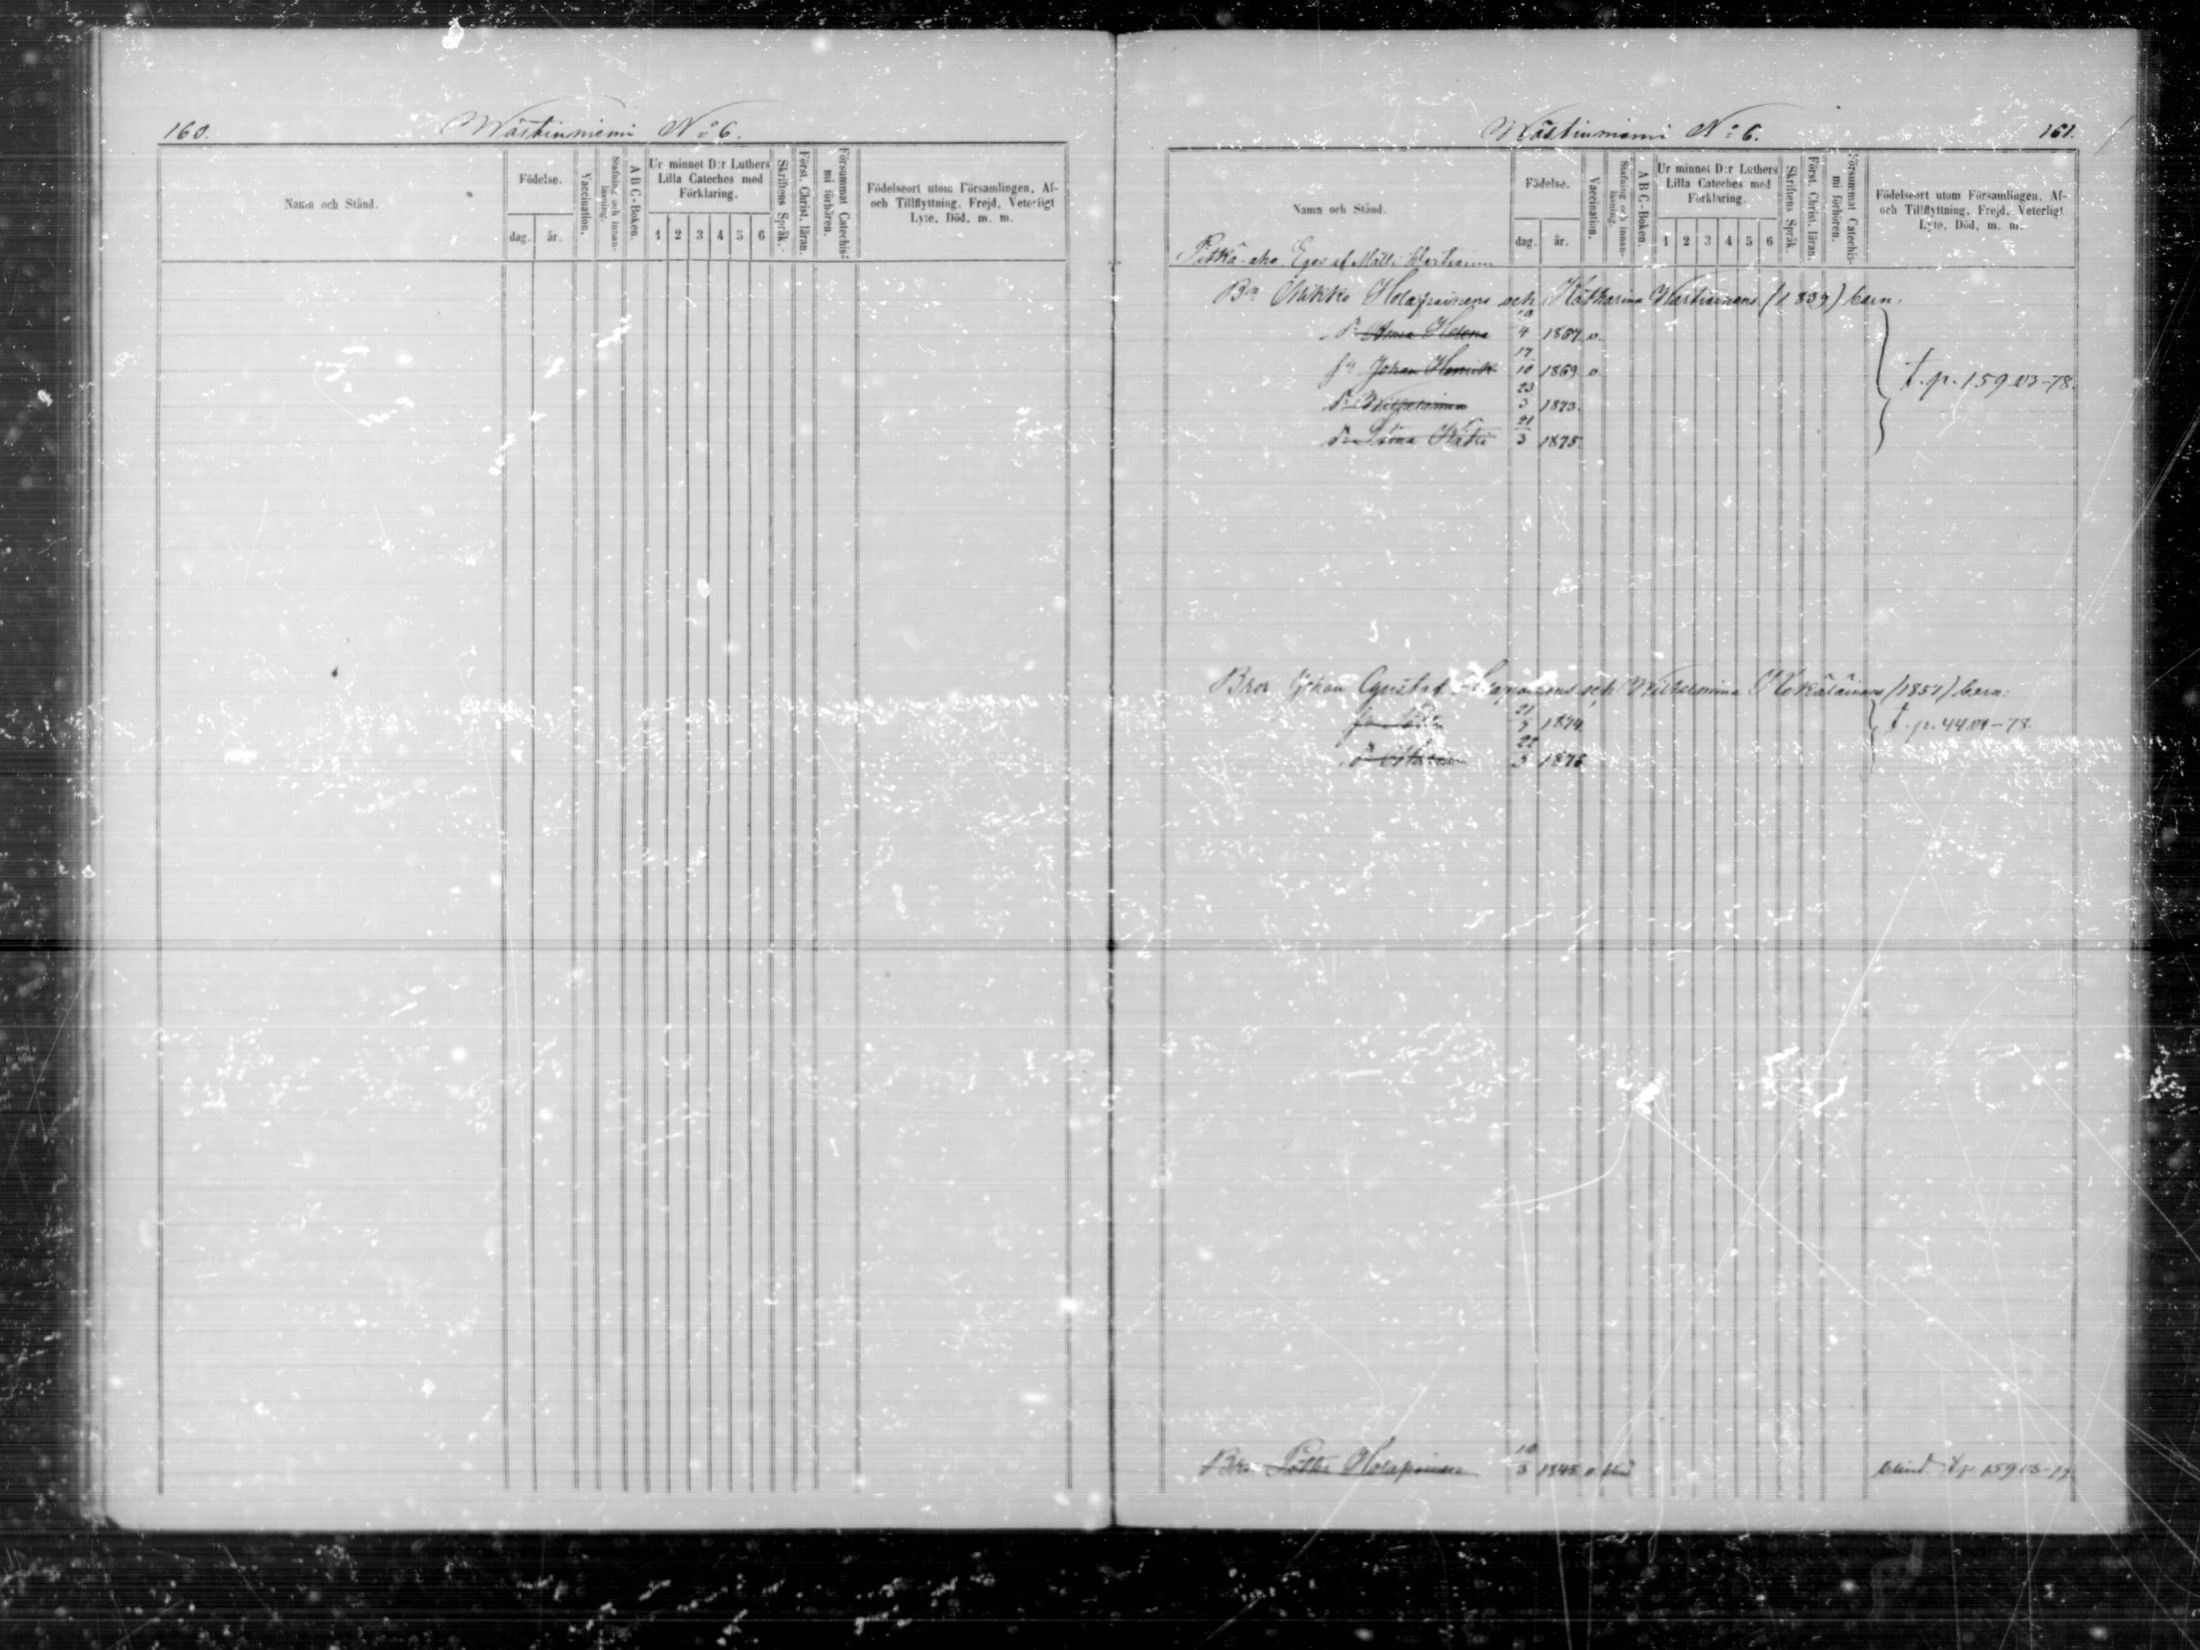 160. Wästinniemi No 6.
Namn och Stånd.
Födelse.
dag. år.
Vaccination.
Stafning och innan-läsning.
A B C-Boken.
Ur minnet D:r Luthers
Lilla Cateches med
Förklaring.
1 2 3 4 5 6
Skriftens Språk.
Först. Christ. läran.
Försummat Catechis-
mi förhören.
Födelseort utom Församlingen, Af-
och Tillflyttning, Frejd, Veterligt
Lyte, Död, m. m.
Wästinniemi No 6. 161.
Namn och Stånd.
Födelse.
dag. år.
Vaccination.
Stafning och innan-läsning.
A B C-Boken.
Ur minnet D:r Luthers
Lilla Cateches med
Förklaring.
1 2 3 4 5 6
Skriftens Språk.
Först. Christ. läran.
Försummat Catechis-
mi förhören.
Födelseort utom Församlingen, Af-
och Tillflyttning, Frejd, Veterligt
Lyte, Död, m. m.
Pitkä-aho Eges af Matti
Mikko Holopainens och Katharina Wartiainens (1839) barn:
Anna Helena 19/4 1867 o
Johan Henrik 17/10 1869 o
t. p. 159 03-78.
Wilhelmina 23/3 1873.
Kätri 21/3 1875
Bror Johan Gustaf och Wilhelmina (1851) barn:
21 1874 t. p. 44 01-78
22/3 1876
Bror Petter Holopainen 10/3 1848 o blind t p 159 03-79